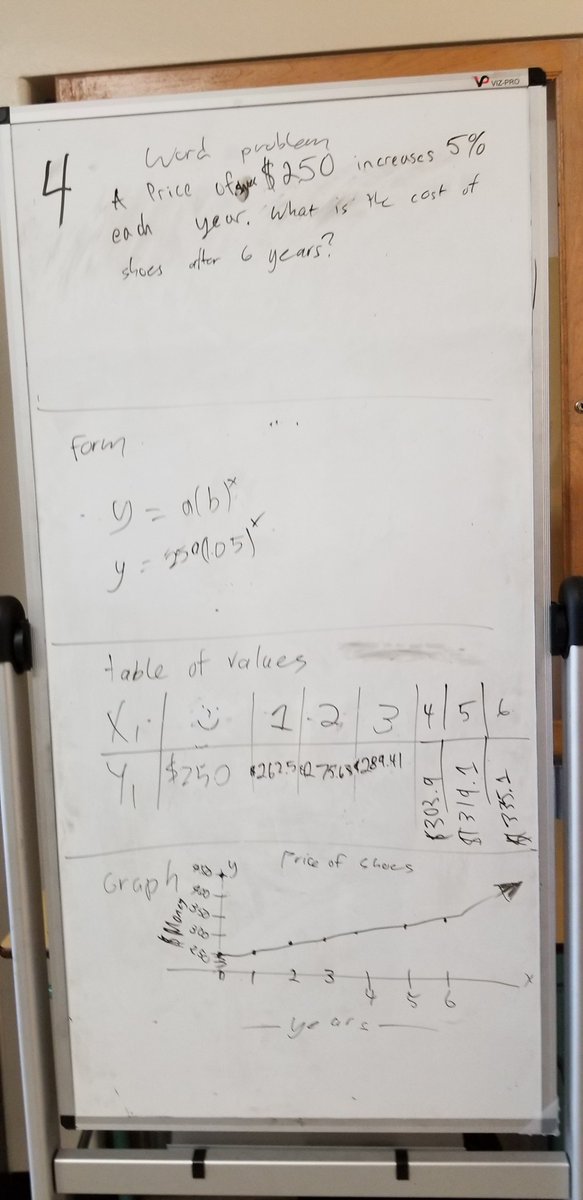 VP VIZ-PRO
4
Word problem
A Price of $250 increases 5%
each year. What is the cost of
shoes after 6 years?
Form
y = a(b)^x
y = 250(1.05)^x
table of values
X₁ 1 2 3 4 5 6
Y₁ $250 $262.5 $275.63 $289.41 $303.9 $319.1 $335.1
Graph y Price of shoes
$ Money
350
300
250
0 1 2 3 4 5 6 x
years